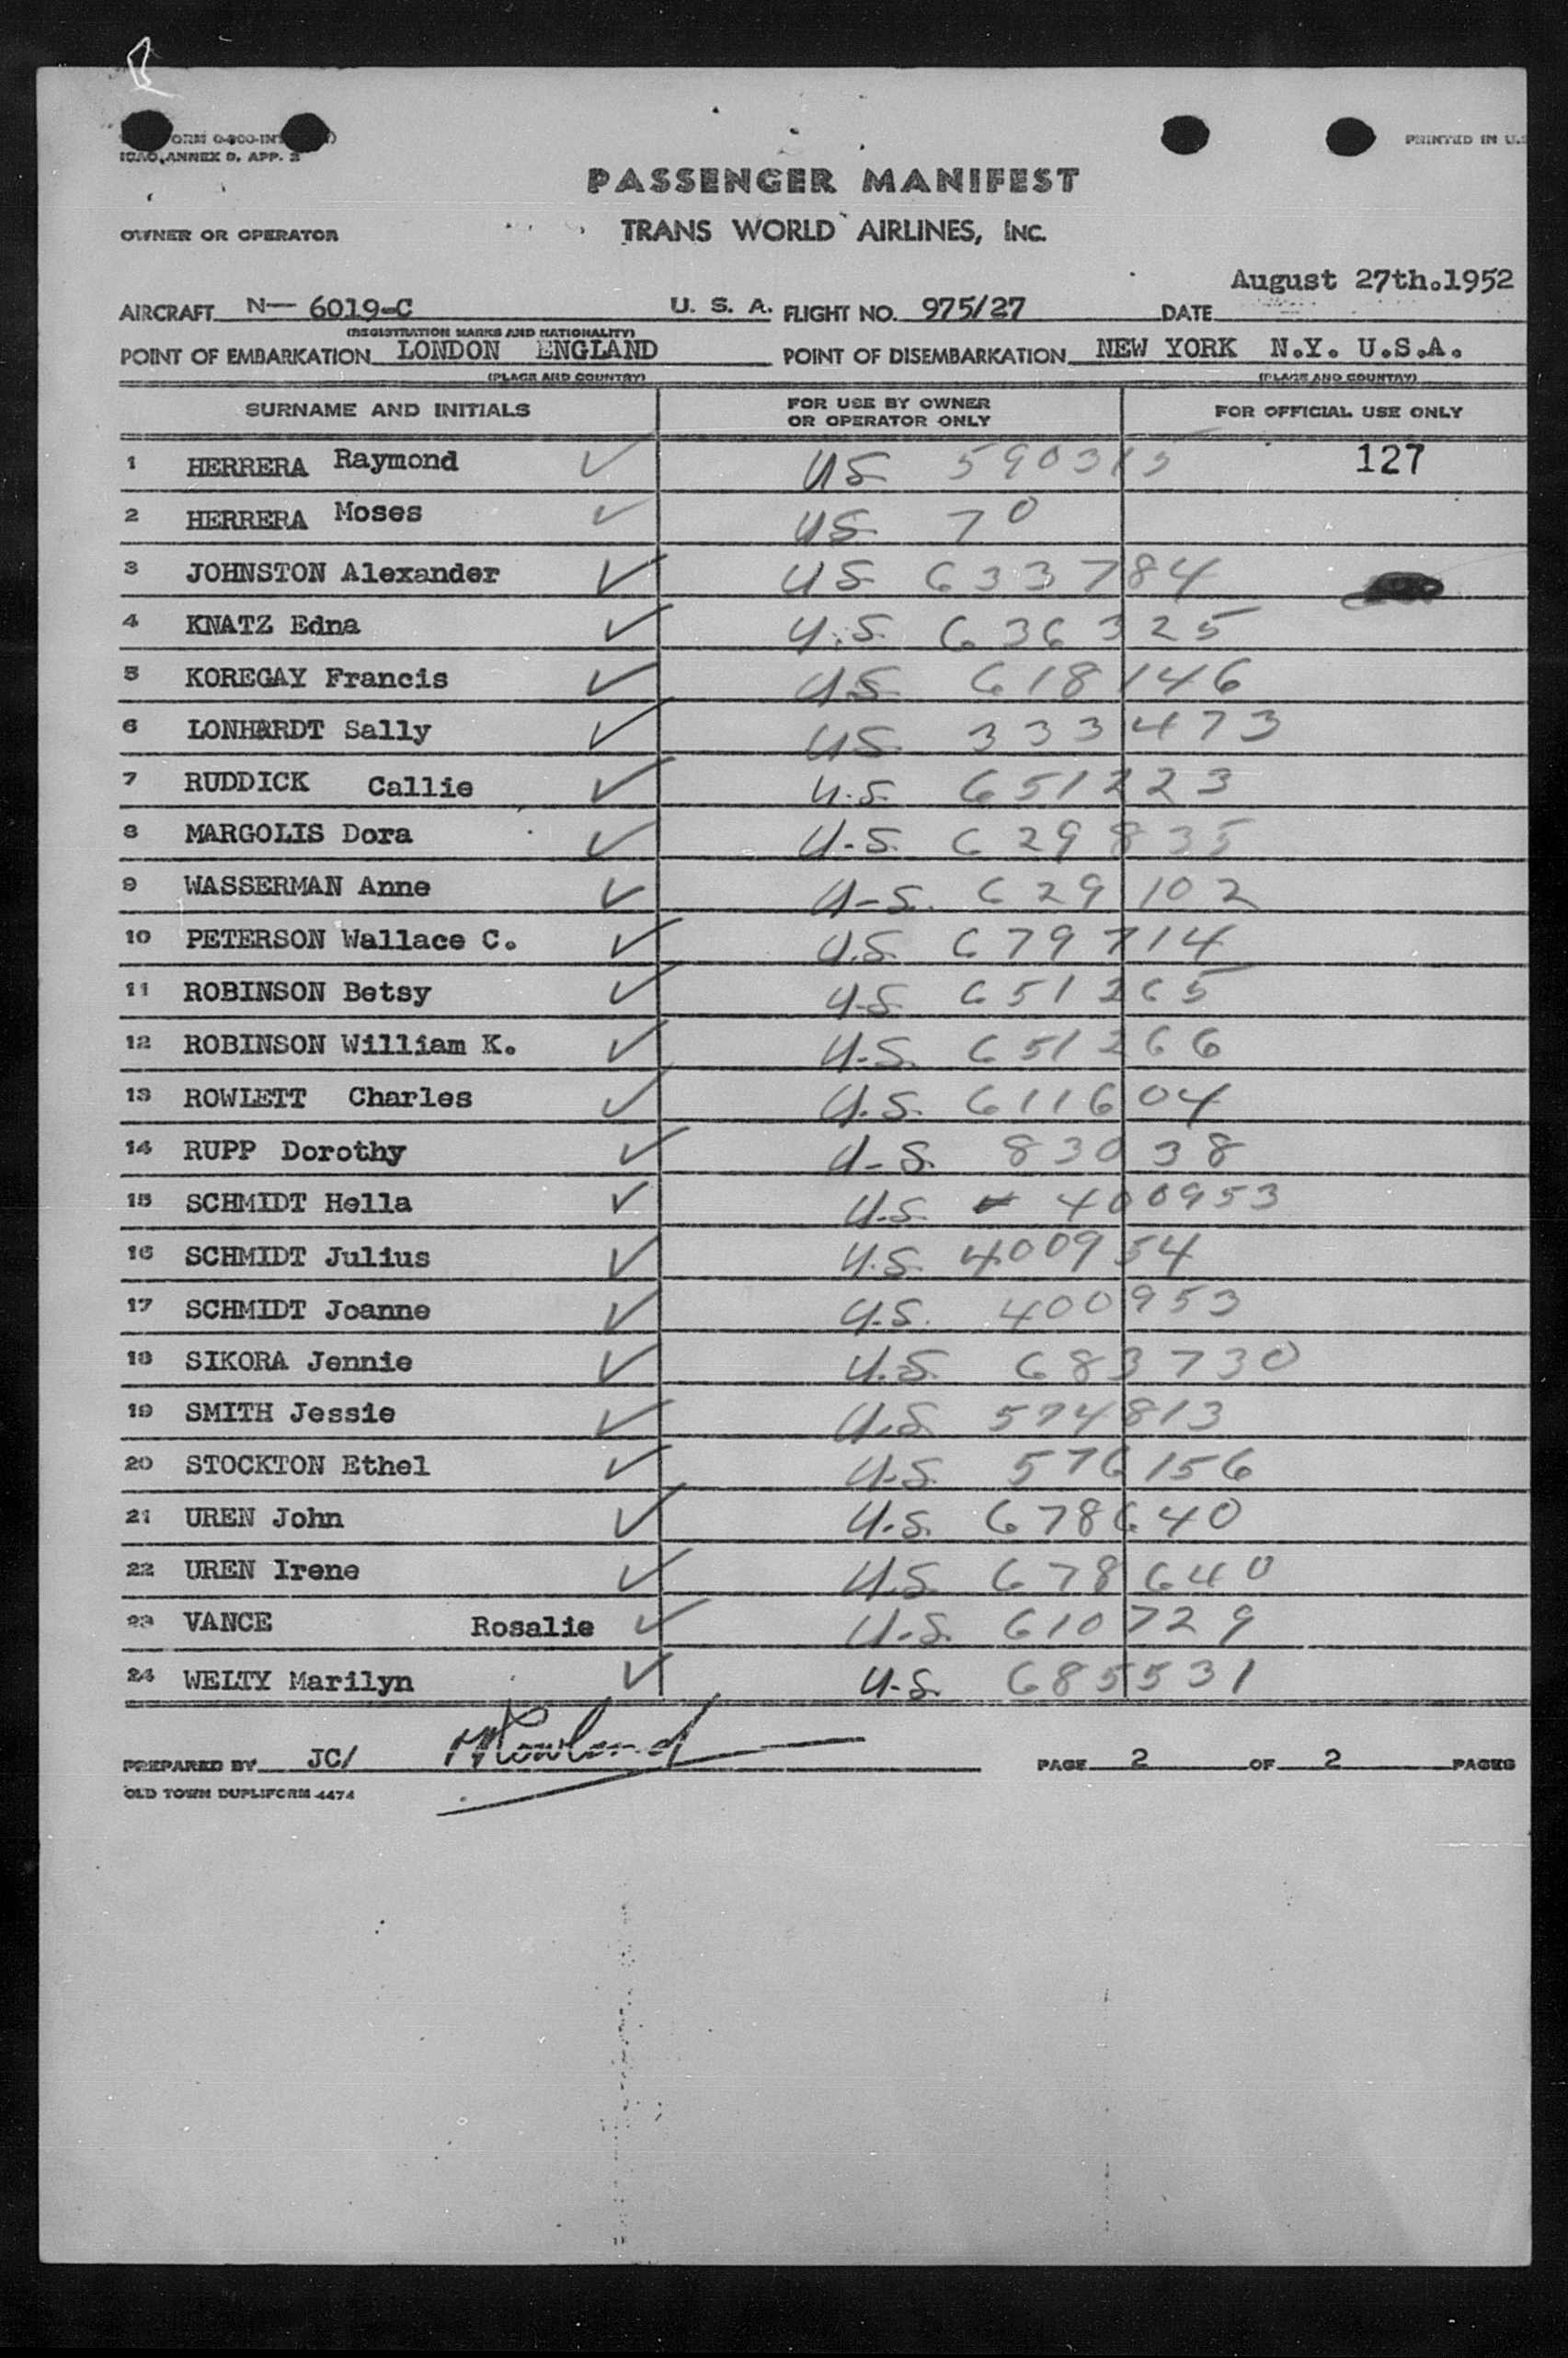 ICAO, ANNEX 9, APP. 3
PRINTED IN U.S
PASSENGER MANIFEST
OWNER OR OPERATOR TRANS WORLD AIRLINES, INC.
August 27th.1952
AIRCRAFT N— 6019-C U. S. A. FLIGHT NO. 975/27 DATE
(REGISTRATION MARKS AND NATIONALITY)
POINT OF EMBARKATION LONDON ENGLAND POINT OF DISEMBARKATION NEW YORK N.Y. U.S.A.
(PLACE AND COUNTRY) (PLACE AND COUNTRY)
SURNAME AND INITIALS FOR USE BY OWNER OR OPERATOR ONLY FOR OFFICIAL USE ONLY
1 HERRERA Raymond ✓ US 590315 127
2 HERRERA Moses ✓ US 70
3 JOHNSTON Alexander ✓ US 633784
4 KNATZ Edna ✓ U.S. 636325
5 KOREGAY Francis ✓ US. 618146
6 LONHARDT Sally ✓ US. 333473
7 RUDDICK Callie ✓ U.S. 651223
8 MARGOLIS Dora ✓ U.S. 629835
9 WASSERMAN Anne ✓ U-S. 629102
10 PETERSON Wallace C. ✓ U.S. 679714
11 ROBINSON Betsy ✓ U.S. 651265
12 ROBINSON William K. ✓ U.S. 651266
13 ROWLETT Charles ✓ U.S. 611604
14 RUPP Dorothy ✓ U-S. 83038
15 SCHMIDT Hella ✓ U.S. 400953
16 SCHMIDT Julius ✓ U.S. 400954
17 SCHMIDT Joanne ✓ U.S. 400953
18 SIKORA Jennie ✓ U.S. 683730
19 SMITH Jessie ✓ U.S. 574813
20 STOCKTON Ethel ✓ U.S. 576156
21 UREN John ✓ U.S. 678640
22 UREN Irene ✓ U.S. 678640
23 VANCE Rosalie ✓ U.S. 610729
24 WELTY Marilyn ✓ U.S. 685531
PREPARED BY JC/ PAGE 2 OF 2 PAGES
OLD TOWN DUPLIFORM 4474